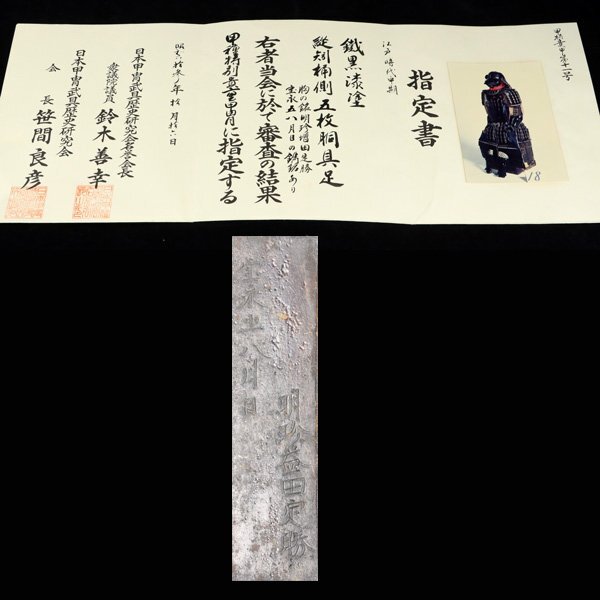 指定書
江戸時代中期
鐵黒漆塗
縦矧桶側五枚胴具足
胸の銘明珍増田定勝
宝永五八月日の銘あり
右者当会に於て審査の結果
甲種特別重要甲冑に指定する
日本甲冑武具歴史研究会名誉会長
衆議院議員 鈴木善幸
日本甲冑武具歴史研究会
会長 笹間良彦
18
宝永五八月日
明珍益田定勝